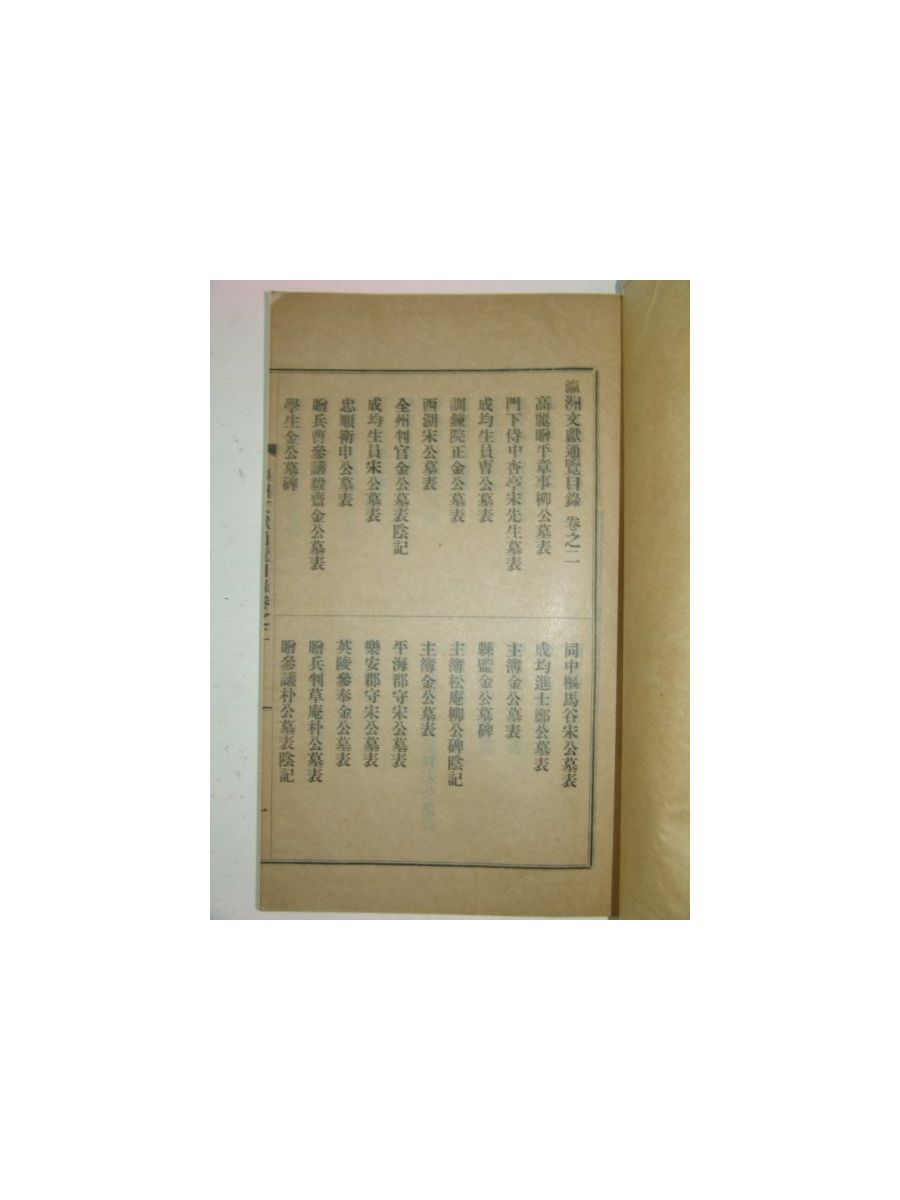 瀛洲文獻通覽目錄 卷之二
高麗贈平章事柳公墓表
門下侍中杏亭宋先生墓表
成均生員曺公墓表
訓鍊院正金公墓表
西湖宋公墓表
全州判官金公墓表陰記
成均生員宋公墓表
忠順衛申公墓表
贈兵曹參議毅齋金公墓表
學生金公墓碑
同中樞馬谷宋公墓表
成均進士鄭公墓表
主簿金公墓表
縣監金公墓碑
主簿松庵柳公碑陰記
主簿金公墓表
平海郡守宋公墓表
樂安郡守宋公墓表
英陵參奉金公墓表
贈兵判草庵朴公墓表
贈參議朴公墓表陰記